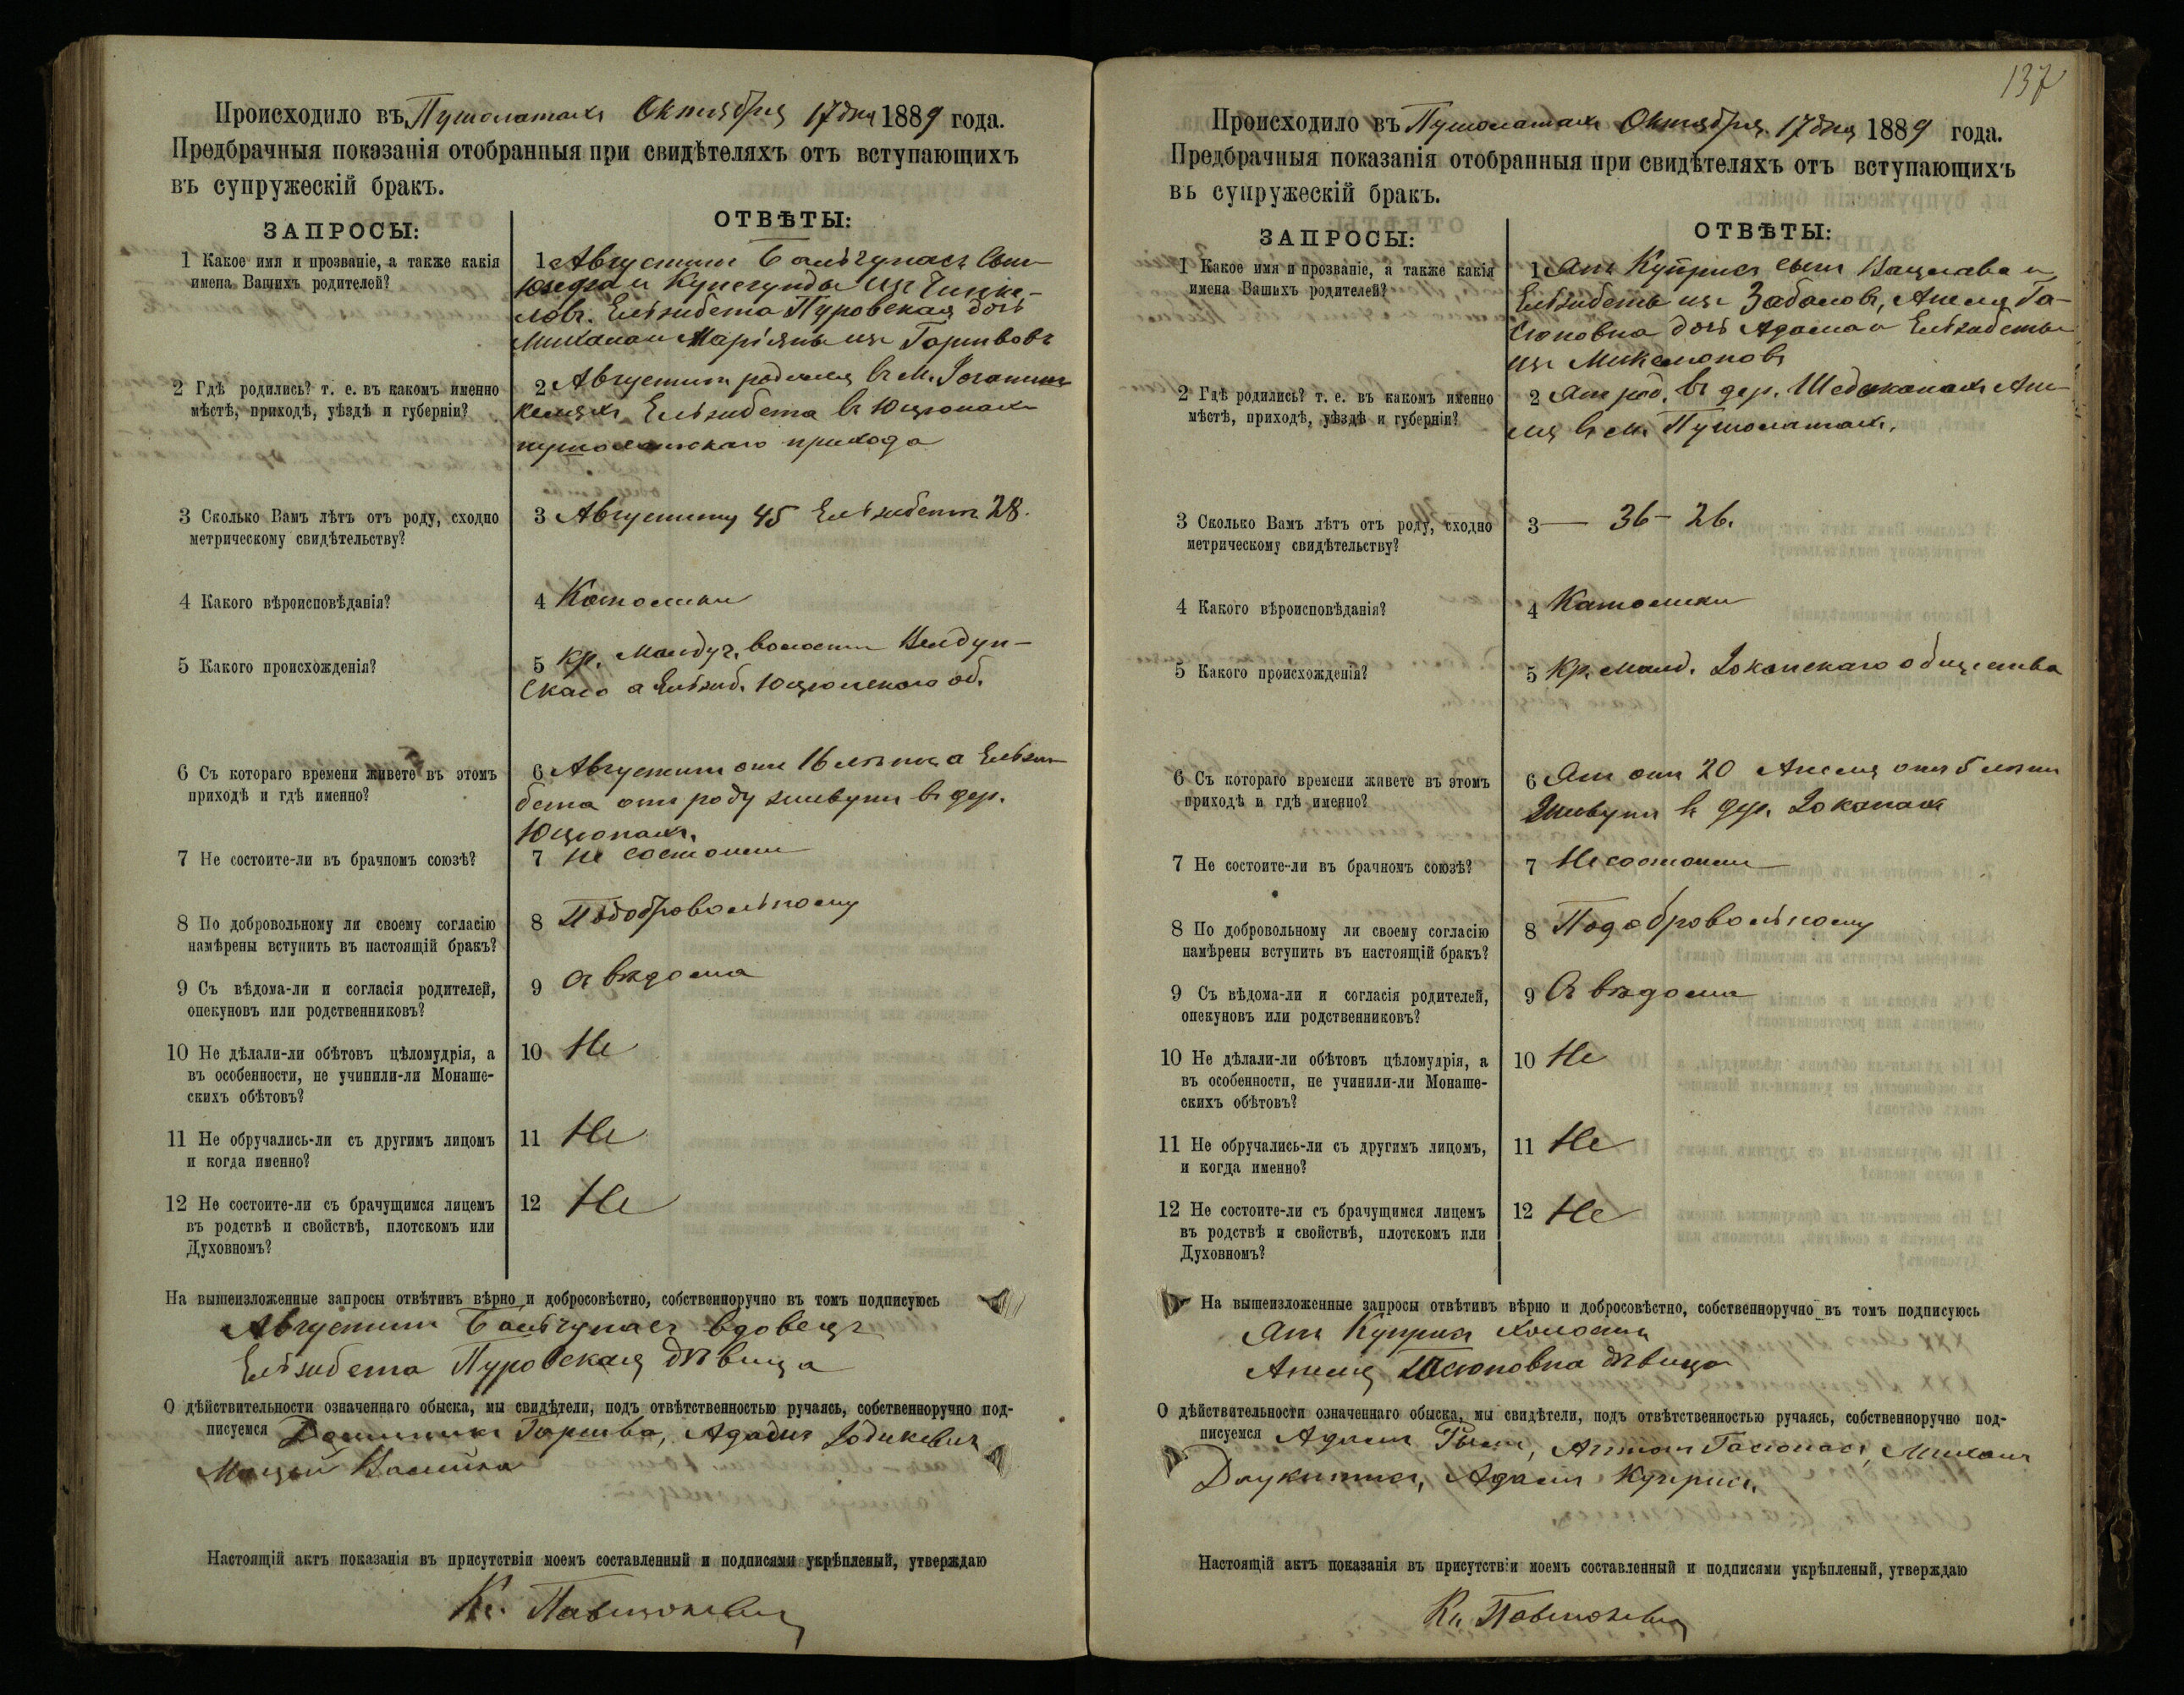 Происходило въ Пушолатахъ Октября 17 дня 1889 года.
Предбрачныя показанія отобранныя при свидѣтеляхъ отъ вступающихъ
въ супружескій бракъ.
ЗАПРОСЫ:
ОТВѢТЫ:
1 Какое имя и прозваніе, а также какія
имена Вашихъ родителей?
1 Августинъ Бальчунасъ сынъ
и Кунегунды изъ
Ельзибета Пуровская дочь
Михаила и Маріяны изъ Горшвовъ
2 Гдѣ родились? т. е. въ какомъ именно
мѣстѣ, приходѣ, уѣздѣ и губерніи?
2 Августинъ родился въ м.
Ельзибета въ Юцюнахъ
пушолатскаго прихода
3 Сколько Вамъ лѣтъ отъ роду, сходно
метрическому свидѣтельству?
3 Августину 45 Ельзибетѣ 28.
4 Какого вѣроисповѣданія?
4 Католики
5 Какого происхожденія?
5 Кр. волости
а Ельзиб. Юцюнскаго об.
6 Съ котораго времени живете въ этомъ
приходѣ и гдѣ именно?
6 Августинъ отъ 16 лѣтъ а Ельзи-
бета отъ роду живутъ въ дер.
Юцюнахъ.
7 Не состоите-ли въ брачномъ союзѣ?
7 Не состоимъ
8 По добровольному ли своему согласію
намѣрены вступить въ настоящій бракъ?
8 Подобровольному
9 Съ вѣдома-ли и согласія родителей,
опекуновъ или родственниковъ?
9 Съ вѣдома
10 Не дѣлали-ли обѣтовъ цѣломудрія, а
въ особенности, не учинили-ли Монаше-
скихъ обѣтовъ?
10 Не
11 Не обручались-ли съ другимъ лицомъ
и когда именно?
11 Не
12 Не состоите-ли съ брачущимся лицемъ
въ родствѣ и свойствѣ, плотскомъ или
Духовномъ?
12 Не
На вышеизложенные запросы отвѣтивъ вѣрно и добросовѣстно, собственноручно въ томъ подписуюсь
Августинъ Бальчунасъ вдовецъ
Ельзибета Пуровская дѣвица
О дѣйствительности означеннаго обыска, мы свидѣтели, подъ отвѣтственностью ручаясь, собственноручно под-
писуемся Доминикъ Горшва, Адамъ
Настоящій актъ показанія въ присутствіи моемъ составленный и подписями укрѣпленый, утверждаю
Кс.
137
Происходило въ Пушолатахъ Октября 17 дня 1889 года.
Предбрачныя показанія отобранныя при свидѣтеляхъ отъ вступающихъ
въ супружескій бракъ.
ЗАПРОСЫ:
ОТВѢТЫ:
1 Какое имя и прозваніе, а также какія
имена Вашихъ родителей?
1 Янъ Куприсъ сынъ Вацлава и
Ельзибеты изъ Анеля Га-
сюновна дочь Адама и Ельзибеты
изъ
2 Гдѣ родились? т. е. въ какомъ именно
мѣстѣ, приходѣ, уѣздѣ и губерніи?
2 Янъ род. въ дер. Ане-
ля въ м. Пушолатахъ.
3 Сколько Вамъ лѣтъ отъ роду, сходно
метрическому свидѣтельству?
3 — 36 — 26.
4 Какого вѣроисповѣданія?
4 Католики
5 Какого происхожденія?
5 Кр. общества
6 Съ котораго времени живете въ этомъ
приходѣ и гдѣ именно?
6 Янъ отъ 20 Анеля отъ 5 лѣтъ
живутъ въ дер.
7 Не состоите-ли въ брачномъ союзѣ?
7 Не состоимъ
8 По добровольному ли своему согласію
намѣрены вступить въ настоящій бракъ?
8 Подобровольному
9 Съ вѣдома-ли и согласія родителей,
опекуновъ или родственниковъ?
9 Съ вѣдома
10 Не дѣлали-ли обѣтовъ цѣломудрія, а
въ особенности, не учинили-ли Монаше-
скихъ обѣтовъ?
10 Не
11 Не обручались-ли съ другимъ лицомъ,
и когда именно?
11 Не
12 Не состоите-ли съ брачущимся лицемъ
въ родствѣ и свойствѣ, плотскомъ или
Духовномъ?
12 Не
На вышеизложенные запросы отвѣтивъ вѣрно и добросовѣстно, собственноручно въ томъ подписуюсь
Янъ Куприсъ холостъ
Анеля Гасюновна дѣвица
О дѣйствительности означеннаго обыска, мы свидѣтели, подъ отвѣтственностью ручаясь, собственноручно под-
писуемся Адамъ Антонъ Гасюнасъ, Михаилъ
Адамъ Куприсъ.
Настоящій актъ показанія въ присутствіи моемъ составленный и подписями укрѣпленый, утверждаю
Кс.